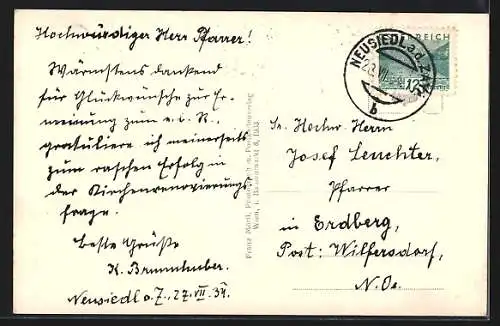 Hochwürdiger Herr Pfarrer!
Wärmstens dankend
für Glückwünsche zur Er-
nennung zum e. b. R.,
gratuliere ich meinerseits
zum raschen Erfolg in
der Kirchenrenovierungs
frage.
Beste Grüße
K. Brunnhuber.
Neusiedl a. Z., 27. VII. 34.
Franz Mörtl, Wien, I. 1333
NEUSIEDL a.d.
28. VII
b
REICH
12
Sr. Hochw. Herrn
Josef Leuchter,
Pfarrer
in Erdberg,
Post: Wilfersdorf,
N. Oe.